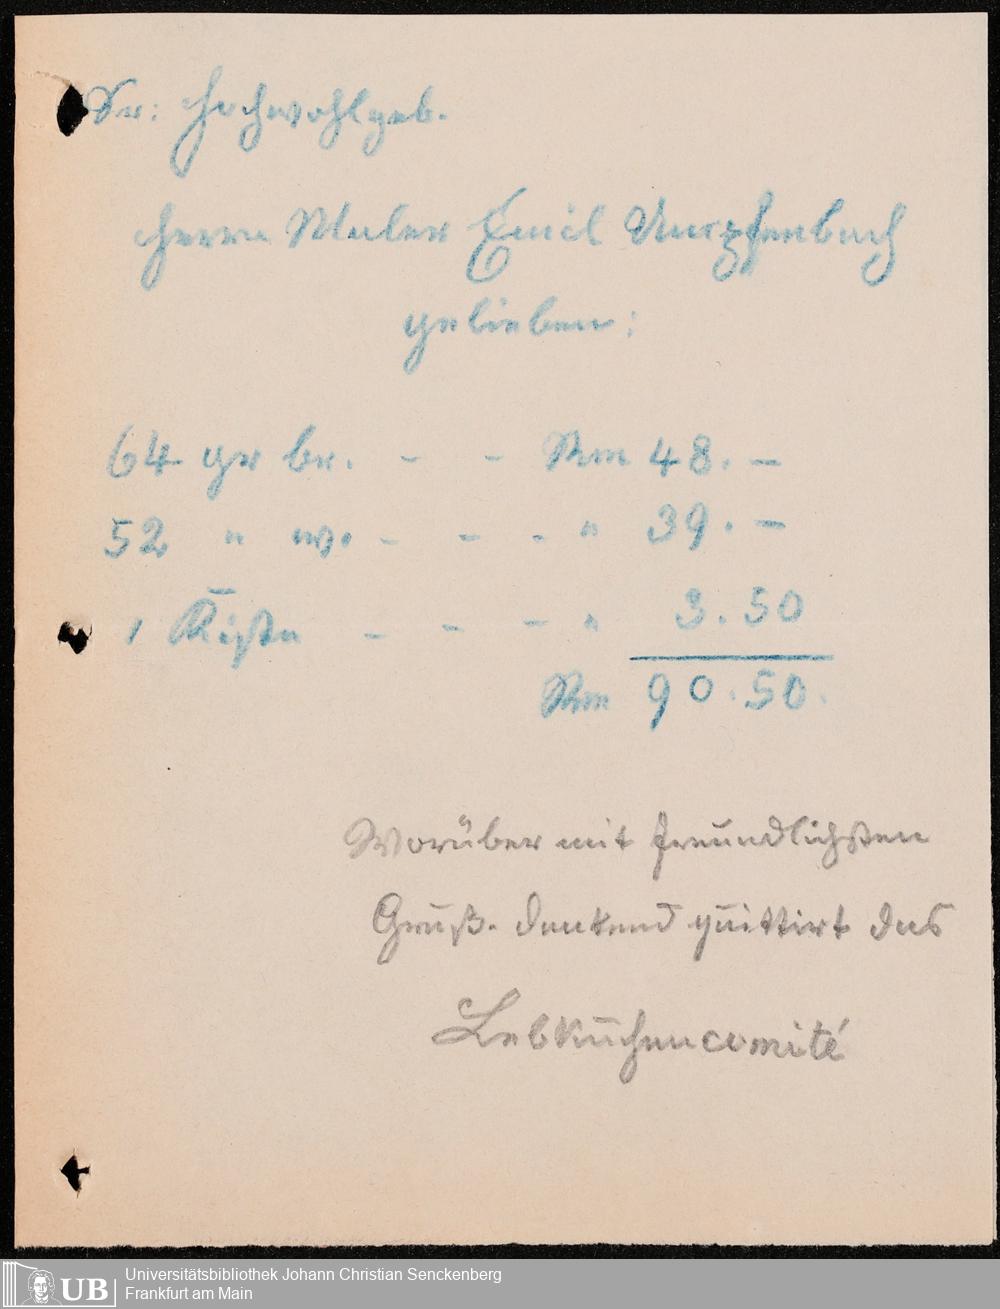 Sr: Hochwohlgeb.
Herrn Maler Emil Rumpfenbach
gelieben:
64 gr br. - - Rm 48. -
52 " w. - - - " 39. -
1 Kiste - - - " 3.50
Rm 90.50.
Worüber mit freundlichsten
Gruß. dankend quittirt das
Lebkuchencomité
Universitätsbibliothek Johann Christian Senckenberg
Frankfurt am Main
UB